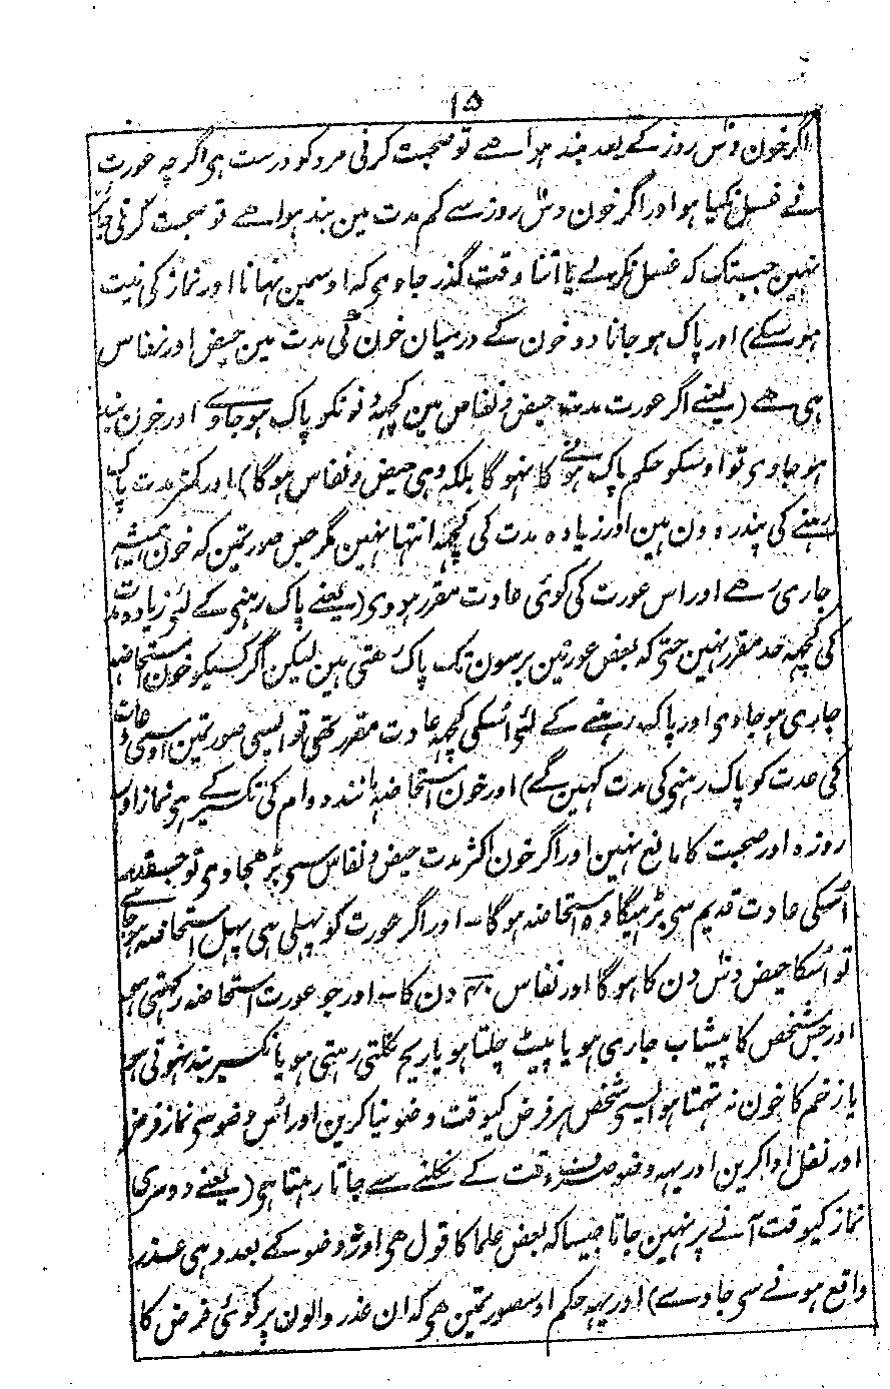 ۱۵
اگر خون دنٰل روز کے بعد بند ہوا ہے تو صحبت کرنی مرد کو درست ہی اگرچہ عورت
نے غسل نکیا ہو اور اگر خون دنٰل روز سے کم مدت مین بند ہوا ہے تو صحبت کرنی جائز
نہین جبتک کہ غسل نکرلے یا اتنا وقت گذر جاوی کہ اوسمین نہانا اور نماز کی نیت
ہوسکے) اور پاک ہوجانا دو خون کے درمیان خون کی مدت مین حیض اور نفاس
ہی ہے (یعنے اگر عورت مدت حیض و نفاس مین کچھہ دنونکو پاک ہوجاوے اور خون بند
ہوجاوی تو اوسکو حکم پاک ہونے کا نہوگا بلکہ وہی حیض و نفاس ہوگا) اور کمتر مدت پاک
رہنے کی پندرہ دن ہین اور زیادہ مدت کی کچھہ انتہا نہین مگر جس صورتمین کہ خون ہمیشہ
جاری رہے اور اس عورت کی کوئی عادت مقرر ہووی (یعنے پاک رہنی کے لئے زیادہ مدت
کی کچھہ حد مقرر نہین حتی کہ بعض عورتین برسون تک پاک رہتی ہین لیکن اگر کسیکو خون استحاضہ
جاری ہوجاوی اور پاک رہنے کے لئی اسکی کچھہ عادت مقرر تھی تو ایسی صورتمین اوسی عادت
کی مدت کو پاک رہنی کی مدت کہین گے) اور خون استحاضہ مانند دوام کی نکسیر کے ہی نماز اور
روزہ اور صحبت کا مانع نہین اور اگر خون اکثر مدت حیض و نفاس سی بڑھجاوی تو جسقدر
اُسکی عادت قدیم سی بڑہیگا وہ استحاضہ ہوگا۔ اور اگر عورت کو پہلی ہی پہل استحاضہ ہوجاے
تو اُسکا حیض دنٰل دن کا ہوگا اور نفاس ۴۰ دن کا۔ اور جو عورت استحاضہ رکھتی ہے
اور جس شخص کا پیشاب جاری ہو یا پیٹ چلتا ہو یا ریح نکلتی رہتی ہو یا نکسیر بند نہوتی ہے
یا زخم کا خون نہ تھمتا ہو ایسی شخص ہر فرض کیوقت وضو نیا کرین اور اُس وضو سی نماز فرض
اور نفل ادا کرین اور یہہ وضو صرف وقت کے نکلنے سے جاتا رہتا ہی (یعنے دوسری
نماز کیوقت آنے پر نہین جاتا جیسا کہ بعض علما کا قول ہی اور وضو کے بعد وہی عذر
واقع ہونے سی جاوے) اور یہہ حکم اوسصورتمین ہی کہ ان عذر والون پر کوئی فرض کا